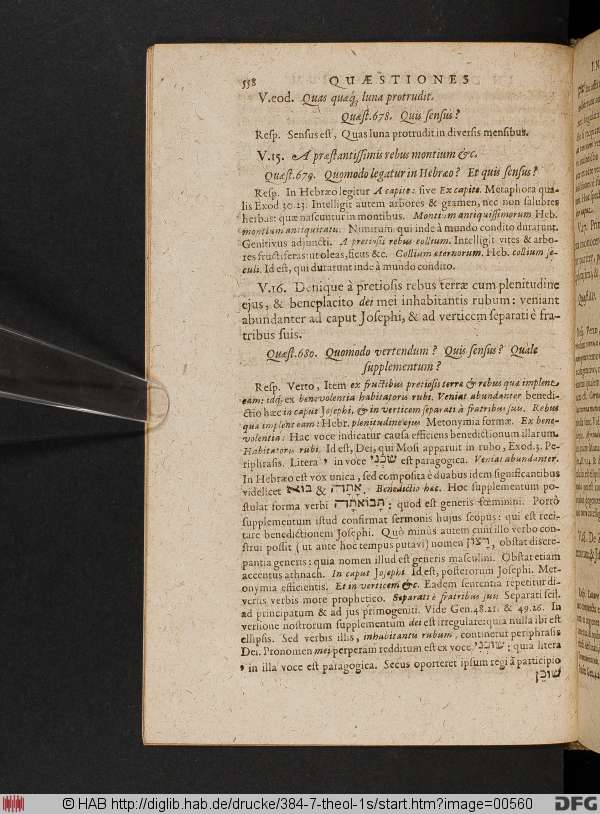 558 QUÆSTIONES
V.eod. Quas quæq; luna protrudit.
Quæst.678. Quis sensus?
Resp. Sensus est, Quas luna protrudit in diversis mensibus.
V.15. A præstantissimis rebus montium &c.
Quæst.679. Quomodo legatur in Hebræo? Et quis sensus?
Resp. In Hebræo legitur A capite: sive Ex capite. Metaphora qua-
lis Exod 30.23. Intelligit autem arbores & gramen, nec non salubres
herbas: quæ nascuntur in montibus. Montium antiquissimorum Heb.
montium antiquitatis. Nimirum qui inde à mundo condito durarunt.
Genitivus adjuncti. A pretiosis rebus collium. Intelligit vites & arbo-
res fructiferas: ut oleas, ficus &c. Collium æternorum. Heb. collium se-
culi. Id est, qui durarunt inde à mundo condito.
V.16. Denique à pretiosis rebus terræ cum plenitudine
ejus, & beneplacito dei mei inhabitantis rubum: veniant
abundanter ad caput Josephi, & ad verticem separati è fra-
tribus suis.
Quæst.680. Quomodo vertendum? Quis sensus? Quale
supplementum?
Resp. Verto, Item ex fructibus pretiosis terræ & rebus qua implent
eam: idq; ex benevolentia habitatoris rubi. Veniat abundanter benedi-
ctio hæc in caput Josephi, & in verticem separati à fratribus suis. Rebus
qua implent eam: Hebr. plenitudine ejus Metonymia formæ. Ex bene-
volentia: Hac voce indicatur causa efficiens benedictionum illarum.
Habitatoris rubi. Id est, Dei, qui Mosi apparuit in rubo, Exod.3. Pe-
riphrasis. Litera י in voce שכני est paragogica. Veniat abundanter.
In Hebræo est vox unica, sed composita è duabus idem significantibus
videlicet בוא & אתה. Benedictio hæc. Hoc supplementum po-
stulat forma verbi תבואתה: quod est generis fœminini. Porrò
supplementum istud confirmat sermonis hujus scopus: qui est reci-
tare benedictionem Josephi. Quò minus autem cum illo verbo con-
strui possit (ut ante hoc tempus putavi) nomen רצון, obstat discre-
pantia generis: quia nomen illud est generis masculini. Obstat etiam
accentus athnach. In caput Josephi Id est, posterorum Josephi. Met-
onymia efficientis. Et in verticem &c. Eadem sententia repetitur di-
versis verbis more prophetico. Separati è fratribus suis Separati scil.
ad principatum & ad jus primogeniti. Vide Gen.48.21. & 49.26. In
versione nostrorum supplementum dei est irregulare: quia nulla ibi est
ellipsis. Sed verbis illis, inhabitantis rubum, continetur periphrasis
Dei. Pronomen mei perperam redditum est ex voce שוכני: quia litera
י in illa voce est paragogica. Secus oporteret ipsum regi à participio
שוכן
© HAB http://diglib.hab.de/drucke/384-7-theol-1s/start.htm?image=00560
DFG